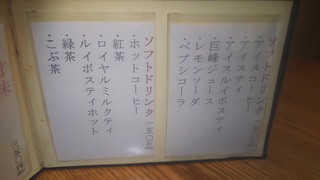 ソフトドリンク 一五〇円
アイスコーヒー
アイスティ
アイスルイボスティ
巨峰ジュース
レモンソーダ
ペプシコーラ
ソフトドリンク 一五〇円
ホットコーヒー
紅茶
ロイヤルミルクティ
ルイボスティホット
緑茶
こぶ茶